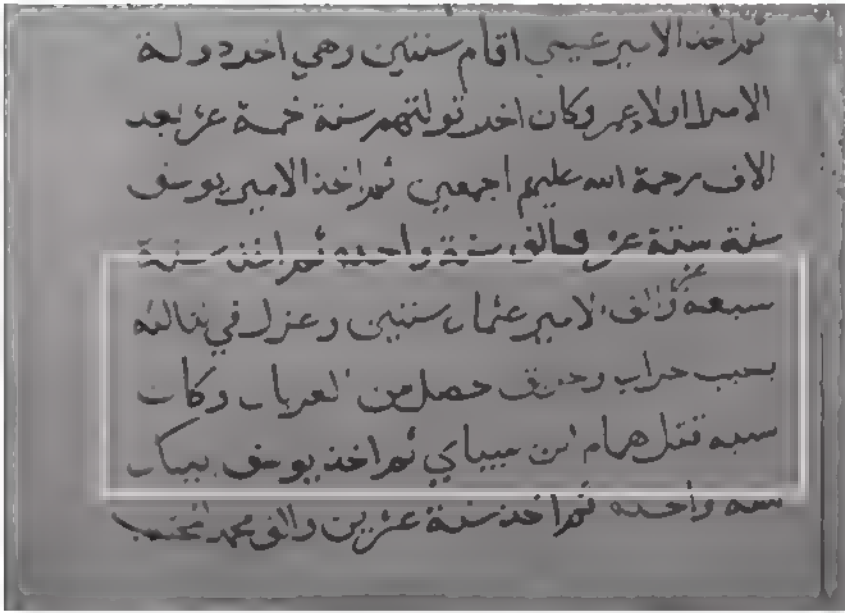 ثم اخذ الامير عيسي اقام سنتين وهي اخر دولة
الامرا اولاد عمر وكان اخر توليتهم سنة خمسة عشر بعد
الاف رحمة الله عليهم اجمعين ثم اخذ الامير يوسف
سنة ستة عشر والف سنة واحده ثم اخذ سنة
سبعة عشر والف الامير عثمان سنتين وعزل في ثالثه
بسبب خراب وحريق حصل من العربان وكان
سببه قتل همام ابن سيباي ثم اخذ يوسف بيك
سنه واحده ثم اخذ سنة عشرين والف محمد